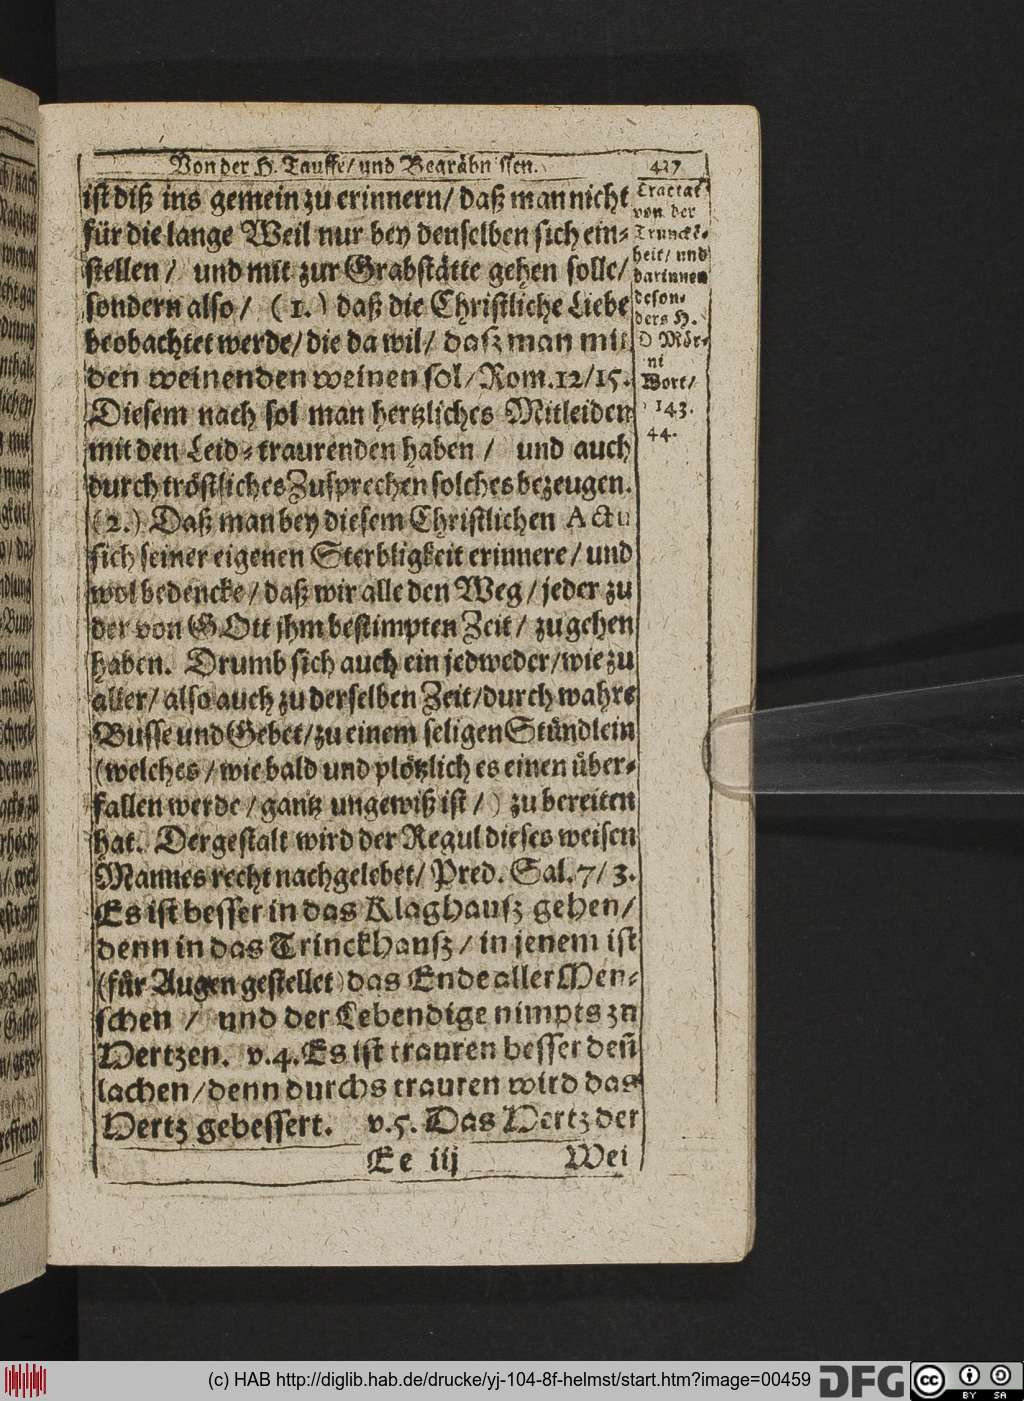 Von der H. Tauffe/ und Begräbn ssen. 427
ist diß ins gemein zu erinnern/ daß man nicht
für die lange Weil nur bey denselben sich ein-
stellen/ und mit zur Grabstätte gehen solle/
sondern also/ (1.) daß die Christliche Liebe
beobachtet werde/ die da wil/ dasz man mit
den weinenden weinen sol/ Rom.12/15.
Diesem nach sol man hertzliches Mitleiden
mit den Leid-traurenden haben/ und auch
durch tröstliches Zusprechen solches bezeugen.
(2.) Daß man bey diesem Christlichen Actu
sich seiner eigenen Sterbligkeit erinnere/ und
wol bedencke/ daß wir alle den Weg/ jeder zu
der von GOtt jhm bestimpten Zeit/ zu gehen
haben. Drumb sich auch ein jedweder/ wie zu
aller/ also auch zu derselben Zeit/ durch wahre
Busse und Gebet/ zu einem seligen Stündlein
(welches/ wie bald und plötzlich es einen über-
fallen werde/ gantz ungewiß ist/) zu bereiten
hat. Dergestalt wird der Regul dieses weisen
Mannes recht nachgelebet/ Pred. Sal.7/3.
Es ist besser in das Klaghausz gehen/
denn in das Trinckhausz/ in jenem ist
(für Augen gestellet) das Ende aller Men-
schen/ und der Lebendige nimpts zu
Hertzen. v.4. Es ist trauren besser deñ
lachen/ denn durchs trauren wird das
Hertz gebessert. v.5. Das Hertz der
Ee iij Wei
Tractat
von der
Trunckē-
heit/ und
darinnen
beson-
ders H.
D Mör-
ni
Wort/
143.
44.
(c) HAB http://diglib.hab.de/drucke/yj-104-8f-helmst/start.htm?image=00459
DFG
cc BY SA